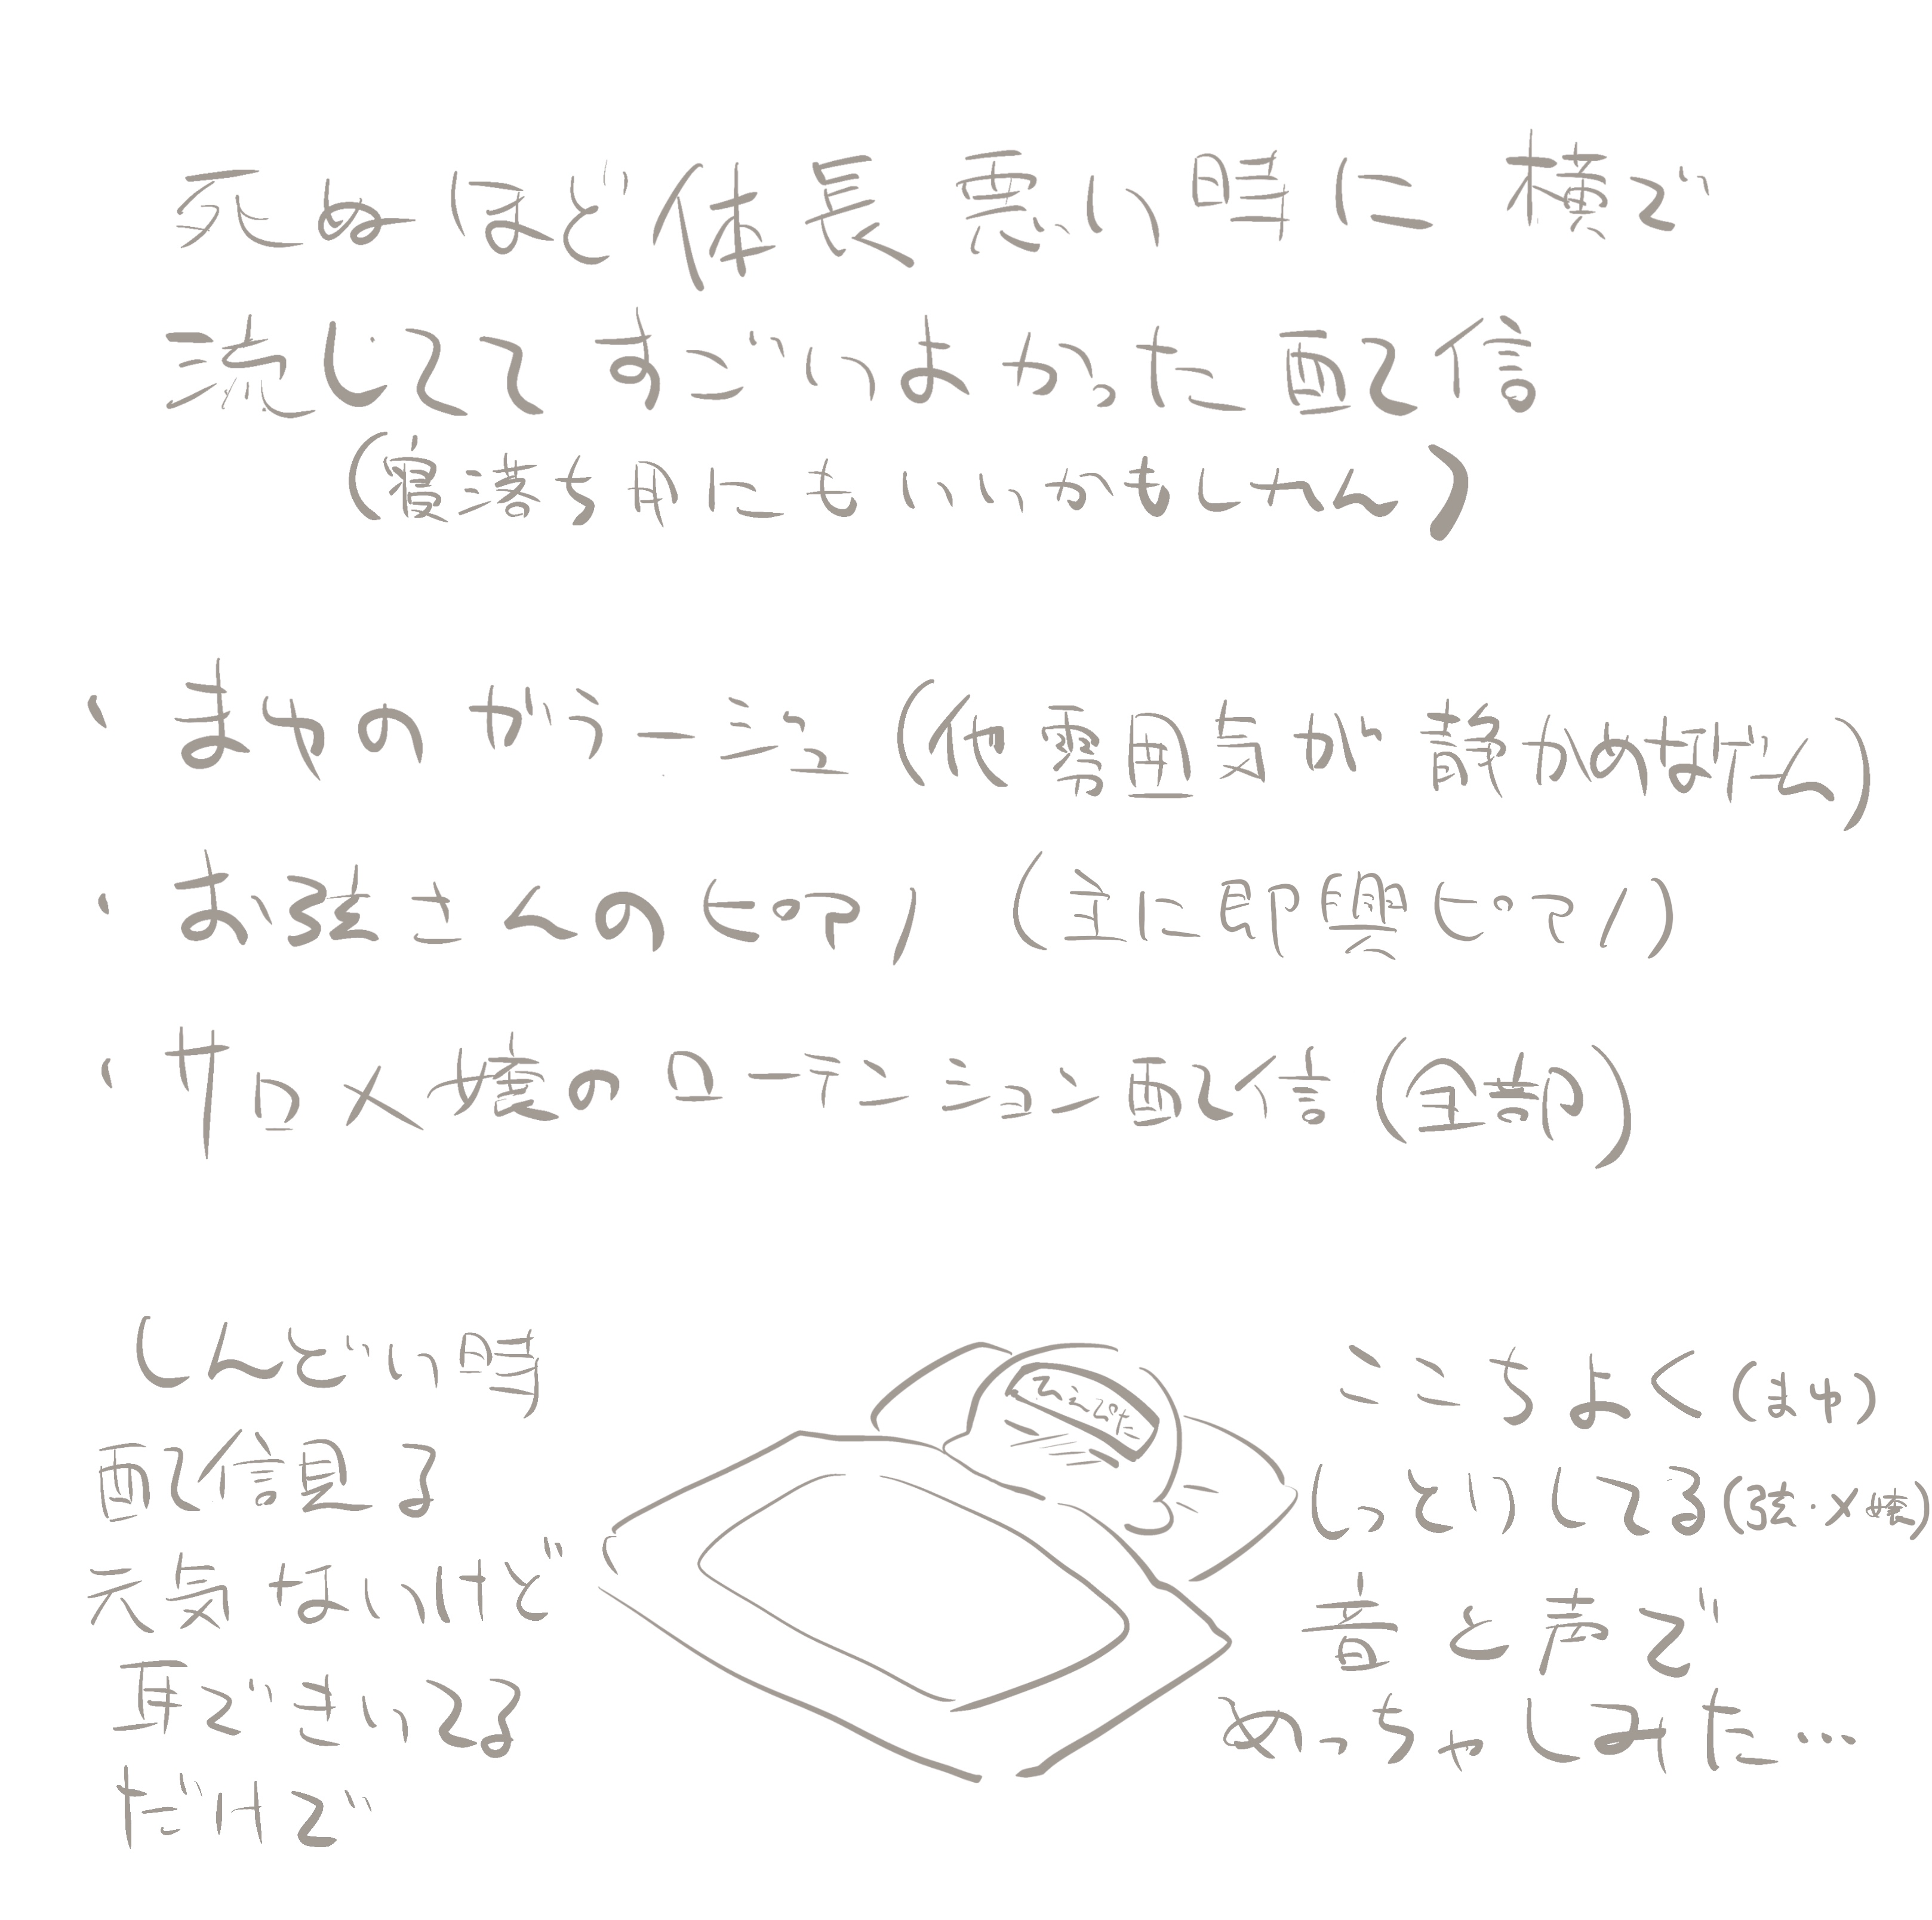 死ぬほど体長悪い時に横で
流しててすごいよかった配信
(寝落ち用にもいいかもしれん)
・まゆのがラージュ(作雰囲気が静かめなげーム)
・お弦さくのピアノ(主に即興ピアノ)
・サロメ嬢のローテンション配信(全部)
しんどい時
配信見る
元気ないけど
耳できいてる
だけで
ここちよく(まゆ)
しっとりしてる(弦・メ嬢)
音と声で
めっちゃしみた…